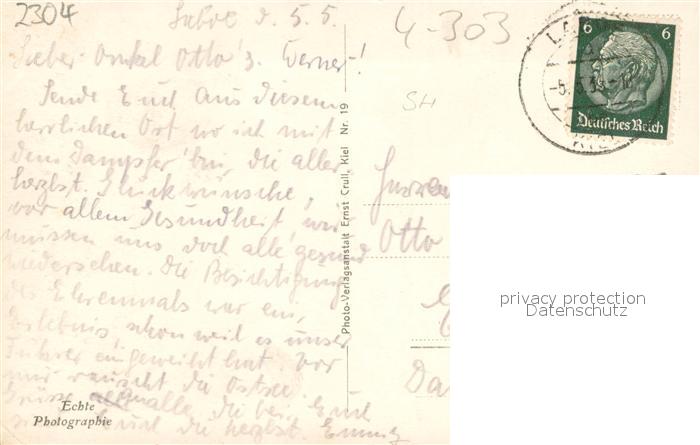 2304
Laboe d. 5.5.
4-303
Lieber Onkel Otto u. Werner!
Sende Euch aus diesem
herrlichen Ort wo ich mit
dem Dampfer bin, die aller
herzlst. Glückwünsche,
vor allem Gesundheit, wir
müssen uns doch alle gesund
wiedersehen. Die Besichtigung
des Ehrenmals war ein
Erlebnis, schon weil es unser
Führer eingeweiht hat. Vor
mir rauscht die Ostsee.
Grüsse alle, die bei Euch
sind Euch die herzlst.
Echte
Photographie
Photo-Verlagsanstalt Ernst Crull, Kiel Nr. 19
SH
6 6
Deutsches Reich
KIEL
Herrn
Otto
Da
privacy protection
Datenschutz